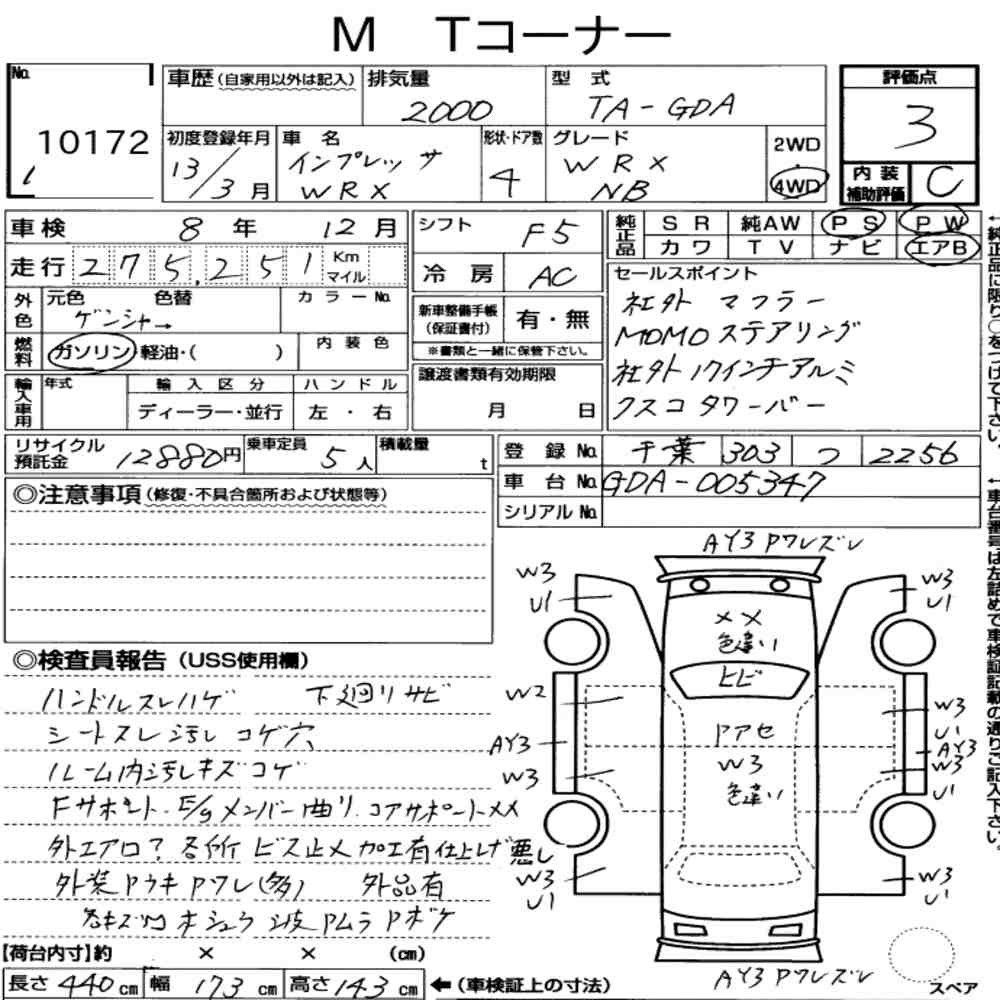 M Tコーナー
No. 10172
車歴(自家用以外は記入) 排気量 2000 型式 TA-GDA
評価点 3
初度登録年月 13/3月 車名 インプレッサ WRX 形状・ドア数 4 グレード WRX NB 2WD・4WD
内装補助評価 C
車検 8年 12月
走行 275,251 Km マイル
外色 元色 ゲンシャ→ 色替 カラーNo.
燃料 ガソリン・軽油・( ) 内装色
輸入車用 年式 輸入区分 ディーラー・並行 ハンドル 左・右
シフト F5
冷房 AC
新車整備手帳(保証書付) 有・無
※書類と一緒に保管下さい。
譲渡書類有効期限
月 日
純正品 SR 純AW PS PW
カワ TV ナビ エアB
セールスポイント
社外 マフラー
MOMOステアリング
社外17インチアルミ
クスコタワーバー
←純正品に限り〇をつけて下さい。
リサイクル預託金 12880円 乗車定員 5人 積載量 t
登録No. 千葉 303 つ 2256
車台No. GDA-005347
シリアルNo.
←車台番号は左詰めで車検証記載の通りご記入下さい。
◎注意事項(修復・不具合箇所および状態等)
◎検査員報告(USS使用欄)
ハンドルスレハゲ 下廻りサビ
シートスレ汚レ コゲ穴
ルーム内汚レキズコゲ
Fサポート・E/gメンバー曲リ. コアサポートXX
外エアロ? 各所 ビス止メ加工有仕上げ悪し
外装アウキPワレ(多) 外品有
ホシュウ波 Pムラ Pボケ
AY3 Pワレズレ
W3
U1
W3
U1
XX
色違い
ヒビ
W2
AY3
W3
Pアセ
W3
色違い
W3
U1
AY3
W3
U1
W3
U1
W3
U1
AY3 Pワレズレ
スペア
【荷台内寸】約 × × (cm)
長さ 440cm 幅 173cm 高さ 143cm ←(車検証上の寸法)